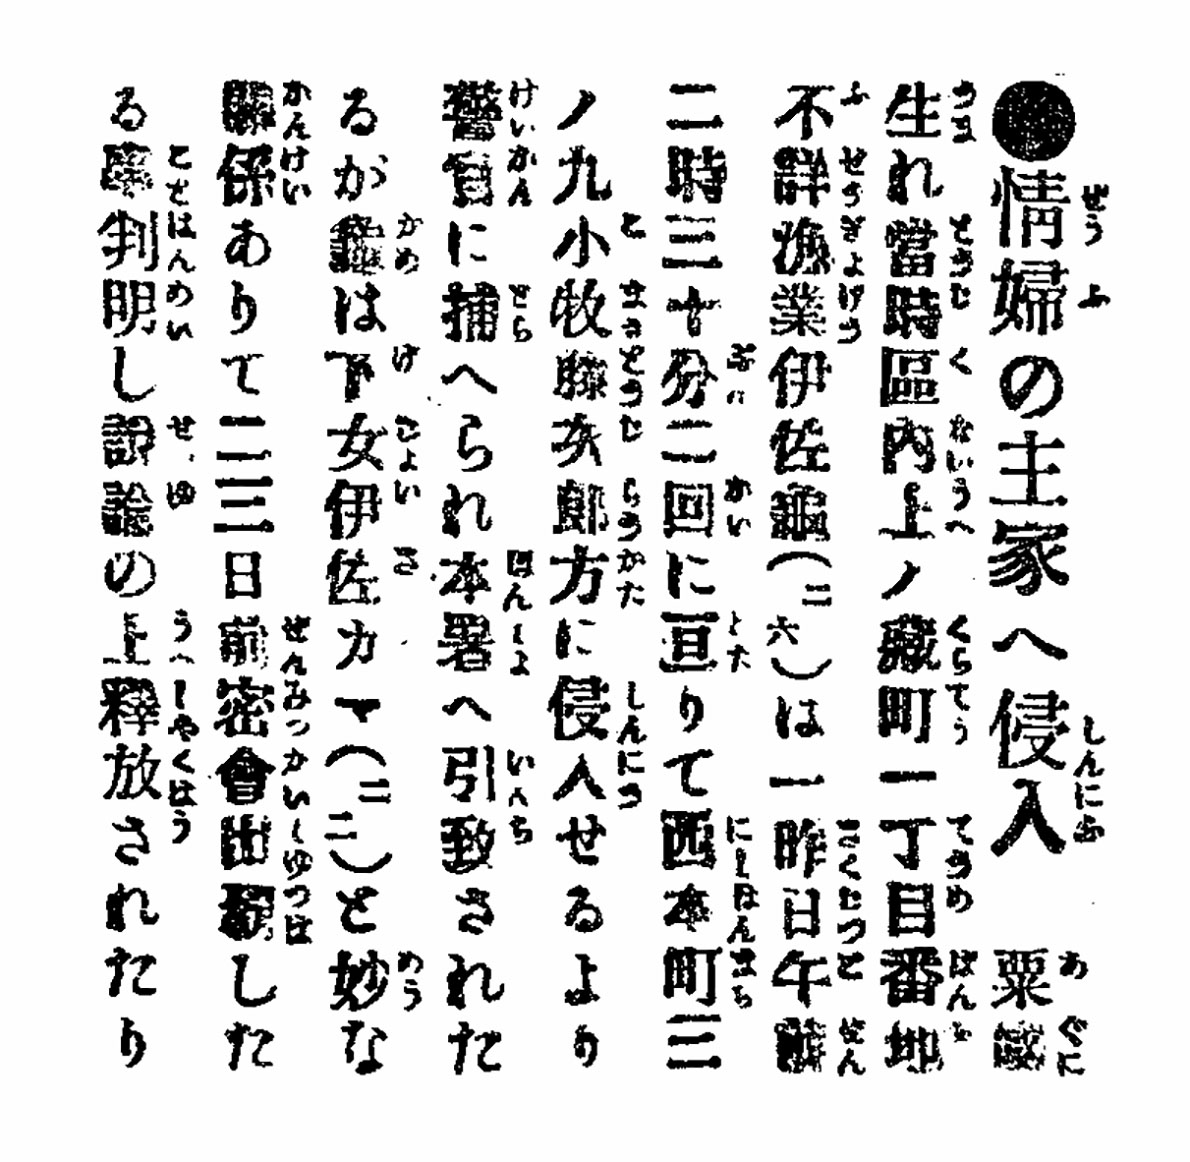 ●情婦の主家へ侵入　粟國
生れ當時區内上ノ藏町一丁目番地
不詳漁業伊佐龜(二六)は一昨日午前
二時三十分二回に亘りて西本町三
ノ九小牧藤次郎方に侵入せるより
警官に捕へられ本署へ引致された
るが龜は下女伊佐カマ(二二)と妙な
關係ありて二三日前密會出奔した
る事判明し説諭の上釋放されたり